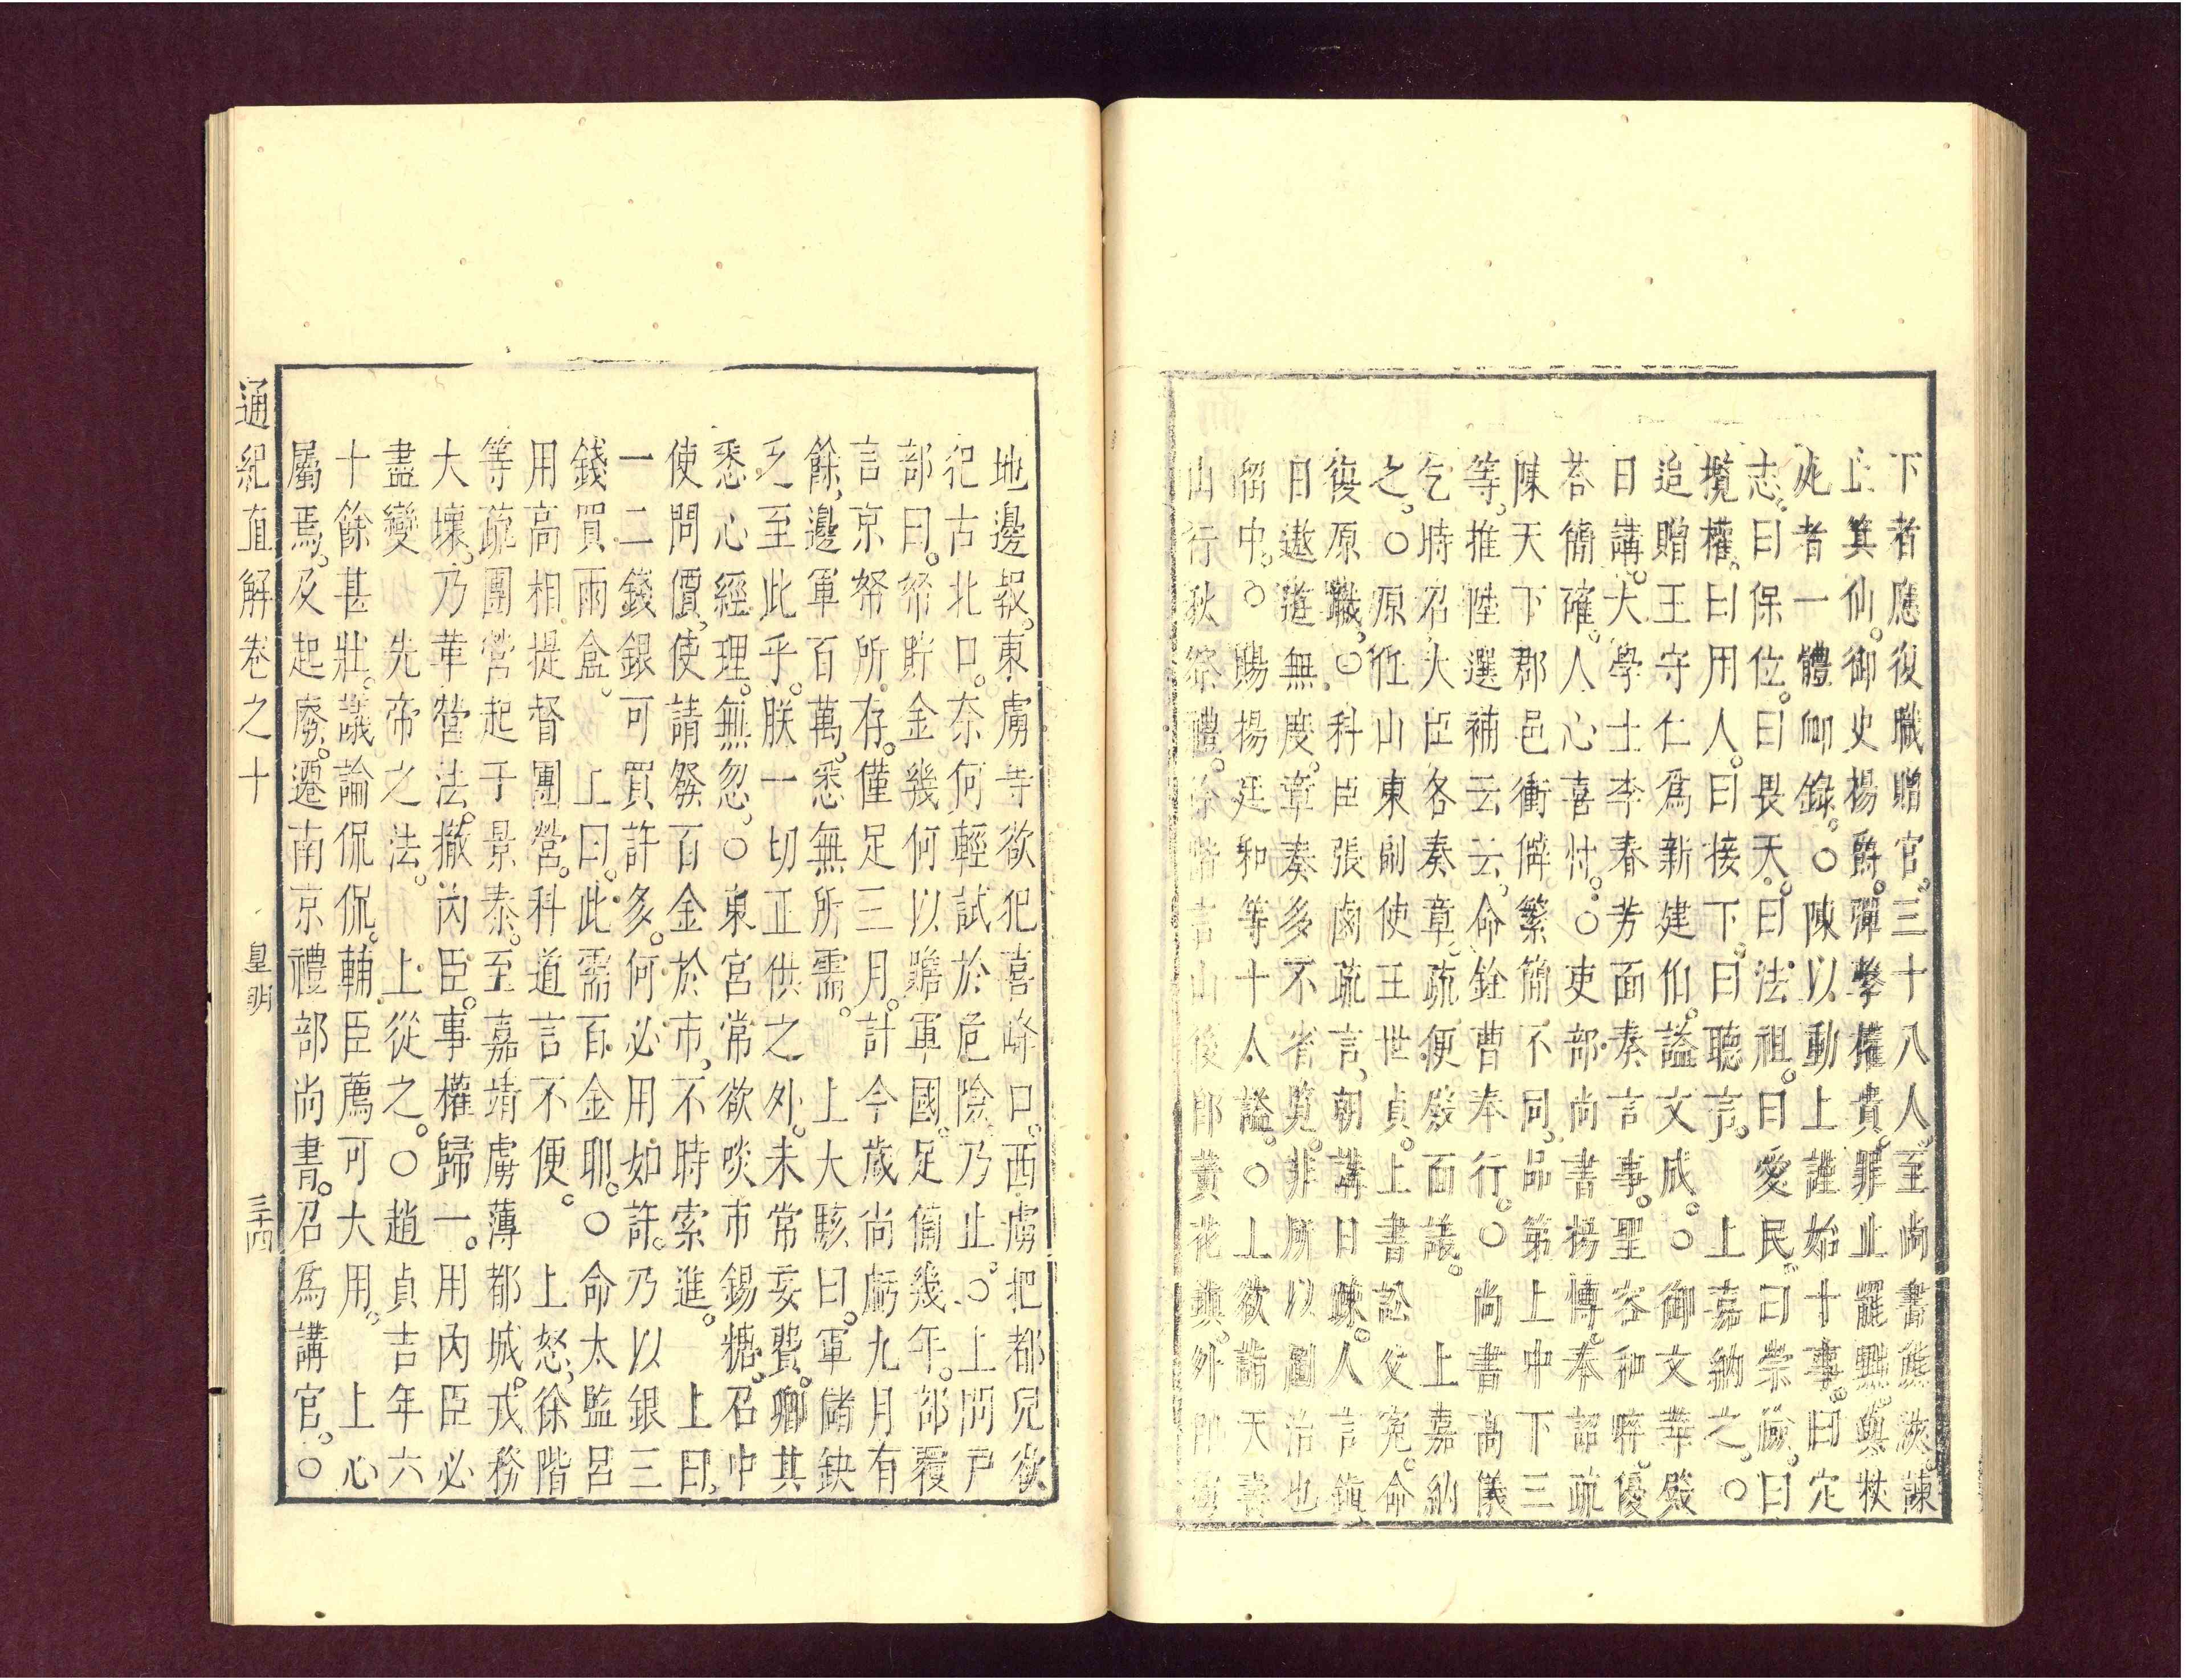 下者應復職贈官。三十八人。至尚書熊浹。諫
止箕仙。御史楊爵。彈擊權貴。罪止罷黜。與杖
死者一體卹錄。○陳以勤上謹始十事。曰定
志。曰保位。曰畏天。曰法祖。曰愛民。曰崇儉。曰
攬權。曰用人。曰接下。曰聽言。上嘉納之。○
追贈王守仁爲新建伯。謚文成。○御文華殿
日講。大學士李春芳面奏言事。聖容和晬。優
荅簡確。人心喜忭。○吏部尚書楊博。奉詔疏
陳天下郡邑衝僻。繁簡不同。品第上中下三
等。推陞選補云云。命銓曹奉行。○尚書高儀
乞時召大臣各奏章。疏便殿面議。上嘉納
之。○原任山東副使王世貞。上書訟父寃。命
復原職。○科臣張鹵疏言。朝講日踈。人言鎮
日遨遊無度。章奏多不省覽。非所以圖治也
留中。○賜楊廷和等十人謚。○上欲詣天壽
山行秋祭禮。徐階言山後即黃花鎮。外即
地。邊報。東虜寺欲犯喜峰口。西虜把都兒欲
犯古北口。奈何輕試於危險。乃止。○上問戶
部曰。帑貯金幾何以贍軍國。足備幾年。部覆
言京帑所存。僅足三月。計今歲尚虧九月有
餘。邊軍百萬。悉無所需。上大駭曰。軍儲缺
乏至此乎。朕一切正供之外。未常妄費。卿其
悉心經理。無忽。○東宮常欲啖市錫糖。召中
使問價。使請發百金於市。不時索進。上曰。
一二錢銀可買許多。何必用如許。乃以銀三
錢買兩盒。上曰。此需百金耶。○命太監呂
用高相提督團營。科道言不便。上怒。徐階
等疏。團營起于景泰。至嘉靖虜薄都城。戎務
大壞。乃革營法。撤內臣。事權歸一。用內臣必
盡變先帝之法。上從之。○趙貞吉年六
十餘甚壯。議論侃侃。輔臣薦可大用。上心
屬焉。及起廢。遷南京禮部尚書。召爲講官。○
通紀直解卷之十 皇明 三十四